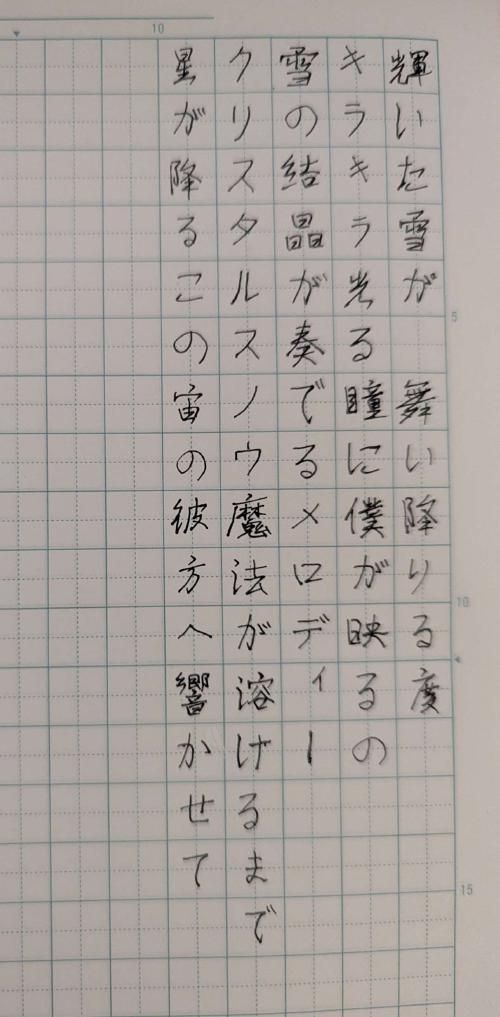 輝いた雪が 舞い降りる度
キラキラ光る瞳に僕が映るの
雪の結晶が奏でるメロディー
クリスタルスノウ魔法が溶けるまで
星が降るこの宙の彼方へ響かせて
10
5
10
15